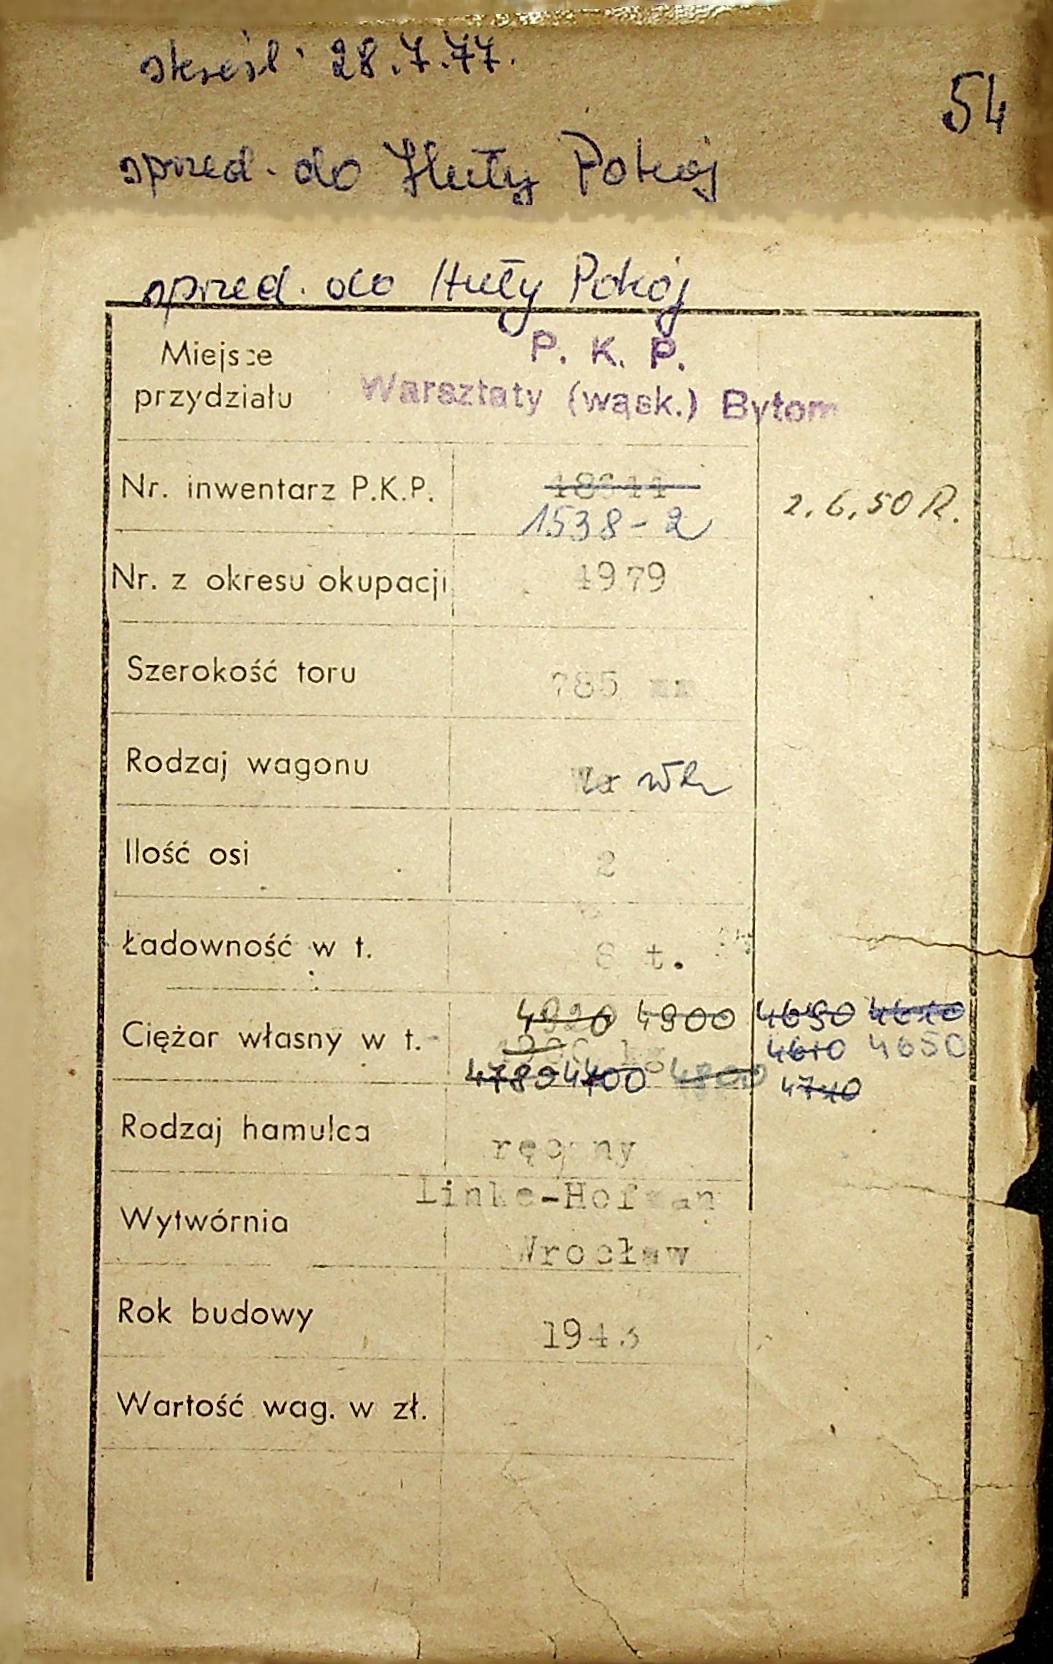 skreśl. 28.7.77.
54
sprzed. do Huty Pokój
sprzed. do Huty Pokój
Miejsce przydziału
P. K. P.
Warsztaty (wąsk.) Bytom
Nr. inwentarz P.K.P.
1538-2
2.6.50 R.
Nr. z okresu okupacji 1979
Szerokość toru 785 mm
Rodzaj wagonu
Ilość osi 2
Ładowność w t. 8 t.
Ciężar własny w t. 4900 4690
4610 4650
kg
4789 4700 4800 4740
Rodzaj hamulca ręczny
Wytwórnia Linke-Hofman
Wrocław
Rok budowy 1943
Wartość wag. w zł.